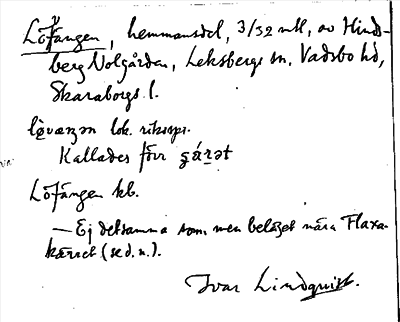 Löfängen, hemmansdel, 3/32 mtl, av Hinds-
berg Nolgården, Leksbergs sn, Vadsbo hd,
Skaraborgs l.
lø̀væŋən lok. riksspr.
Kallades förr gárət
Löfängen kb.
— Ej detsamma som men beläget nära Flaxa-
kärret (se d. n.).
Ivar Lindquist.